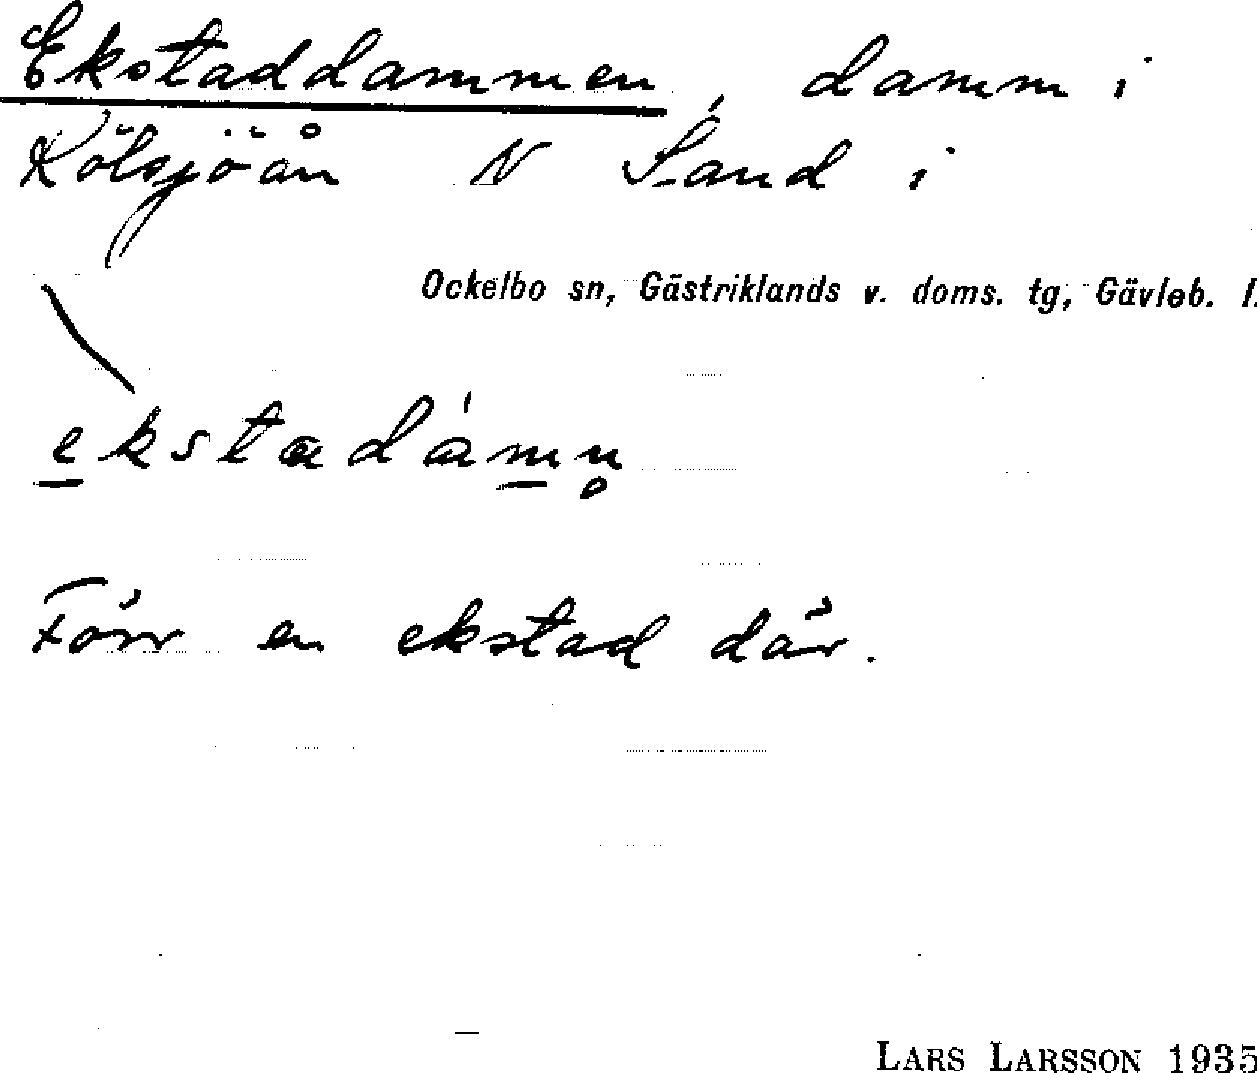 Ekstaddammen, damm i
Kölsjöån N Sand i
Ockelbo sn, Gästriklands v. doms. tg, Gävleb. l.
ekstadámn̥
Förr en ekstad där.
LARS LARSSON 1935